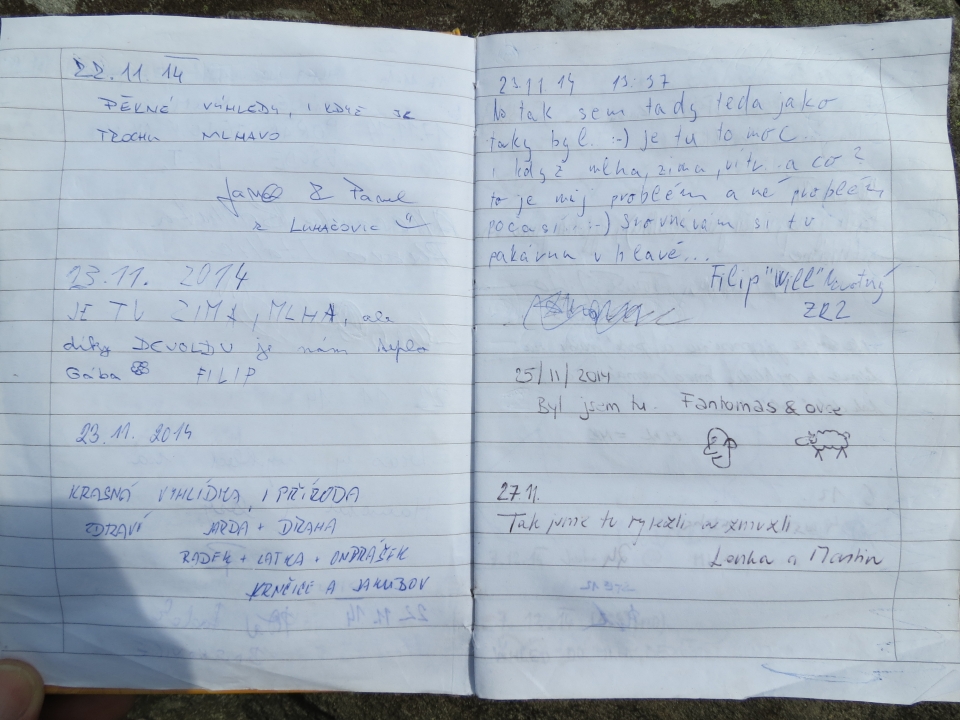 22.11 14
PĚKNÉ VÝHLEDY, I KDYŽ JE
TROCHU MLHAVO
Jana & Pavel
z LUHAČOVIC
23.11. 2014
JE TU ZIMA, MLHA, ale
díky DEVOLDU je nám teplo
Gába FILIP
23.11. 2014
KRASNÁ VYHLÍDKA, I PŘÍRODA
ZDRAVÍ MRĎA + DRAHA
RADEK + LATKA + ONDRÁŠEK
KRNČICE A JAKUBOV
23.11 14 13:37
No tak sem tady teda jako
taky byl. :-) je tu to moc.
i když mlha, zima, vítr. a co?
to je můj problém a né problém
počasí. :-) Srovnávám si tu
v hlavě...
Filip "Will" Novotný
ZR2
25/11/2014
Byl jsem tu. Fantomas & ovce
27.11.
Tak jsme tu vylezli a zmrzli
Lenka a Martin
22 11 14